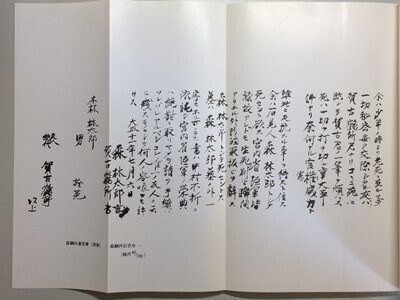 余ハ少年ノ時ヨリ老死ニ至ルマデ
一切秘密無ク交際シタル友ハ
賀古鶴所君ナリコヽニ死ニ
臨ンテ賀古君ノ一筆ヲ煩ハス
死ハ一切ヲ打チ切ル重大事
件ナリ奈何ナル官憲威力ト
雖此ニ反抗スル事ヲ得スト信ス
余ハ石見人森林太郎トシテ
死セント欲ス宮内省陸軍皆
縁故アレドモ生死別ルヽ瞬間
アラユル外形的取扱ヒヲ辭ス
森林太郎トシテ死セントス
墓ハ森林太郎墓ノ外一
字モホル可ラス書ハ中村不折ニ
依託シ宮内省陸軍ノ榮典
ハ絶對ニ取リヤメヲ請フ手續ハ
ソレゾレアルベシコレ唯一ノ友人ニ云ヒ
殘スモノニシテ何人ノ容喙ヲモ許
サス大正十一年七月六日
森林太郎言
賀古鶴所書
森林太郎
男 於菟
賀古鶴所